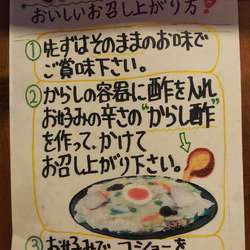 おいしいお召し上がり方!
①先ずはそのままのお味で
ご賞味下さい。
②からしの容器に酢を入れ
お好みの辛さの“からし酢”
を作って、かけて
お召し上がり下さい。
③お好みで コショーを